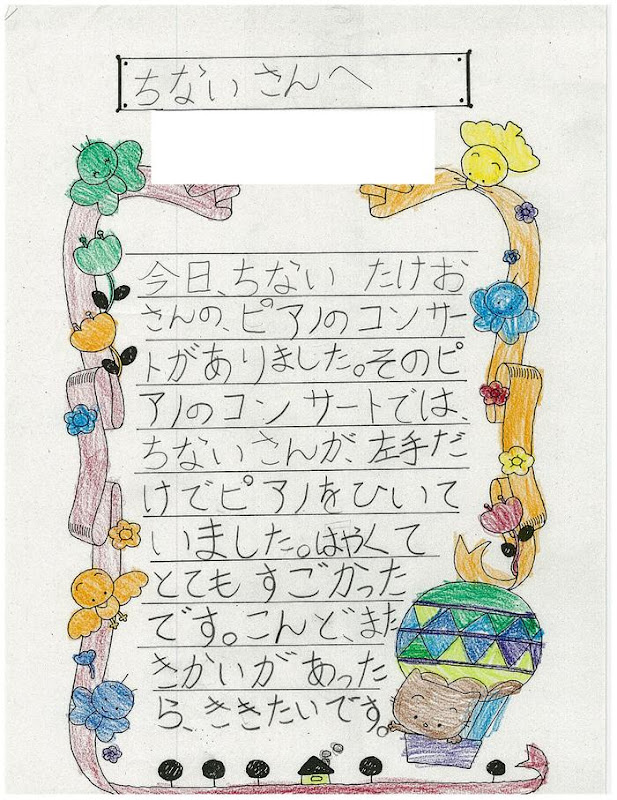 ちないさんへ
今日、ちない たけお
さんの、ピアノのコンサー
トがありました。そのピ
アノのコンサートでは、
ちないさんが、左手だ
けでピアノをひいて
いました。はやくて
とてもすごかった
です。こんど、また
きかいがあった
ら、ききたいです。